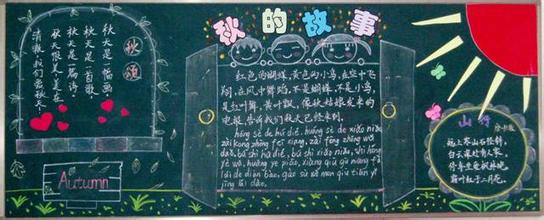 秋的故事
秋颂
秋天是一幅画
秋天是一首歌
秋天是一篇诗
秋天很美
我们爱秋天
Autumn
红色的蝴蝶，黄色的小鸟，在空中飞
翔，在风中舞蹈，不是蝴蝶，不是小鸟，
是红叶舞，黄叶飘，像秋姑娘发来的
电报，告诉我们秋天已经来到。
hóng sè de hú dié, huáng sè de xiǎo niǎo
zài kōng zhōng fēi xiáng, zài fēng zhōng wǔ
dǎo, bú shì hú dié, bú shì xiǎo niǎo, shì hóng
yè wǔ, huáng yè piāo, xiàng qiū gū niáng fā
lái de diàn bào, gào sù wǒ men qiū tiān yǐ
jīng lái dào.
山行
远上寒山石径斜，
白云深处有人家。
停车坐爱枫林晚，
霜叶红于二月花。